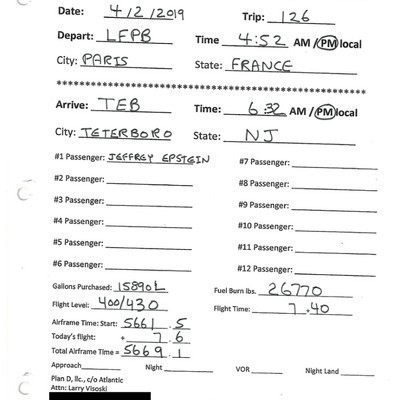 Date: 4/2/2019 Trip: 126
Depart: LFPB Time 4:52 AM / PM local
City: PARIS State: FRANCE
**************************************************
Arrive: TEB Time: 6:32 AM / PM local
City: TETERBORO State: NJ
#1 Passenger: JEFFREY EPSTEIN #7 Passenger:
#2 Passenger: #8 Passenger:
#3 Passenger: #9 Passenger:
#4 Passenger: #10 Passenger:
#5 Passenger: #11 Passenger:
#6 Passenger: #12 Passenger:
Gallons Purchased: 15890L Fuel Burn lbs. 26770
Flight Level: 400/430 Flight Time: 7.40
Airframe Time: Start: 5661.5
Today's flight: + 7.6
Total Airframe Time = 5669.1
Approach Night VOR Night Land
Plan D, llc., c/o Atlantic
Attn: Larry Visoski